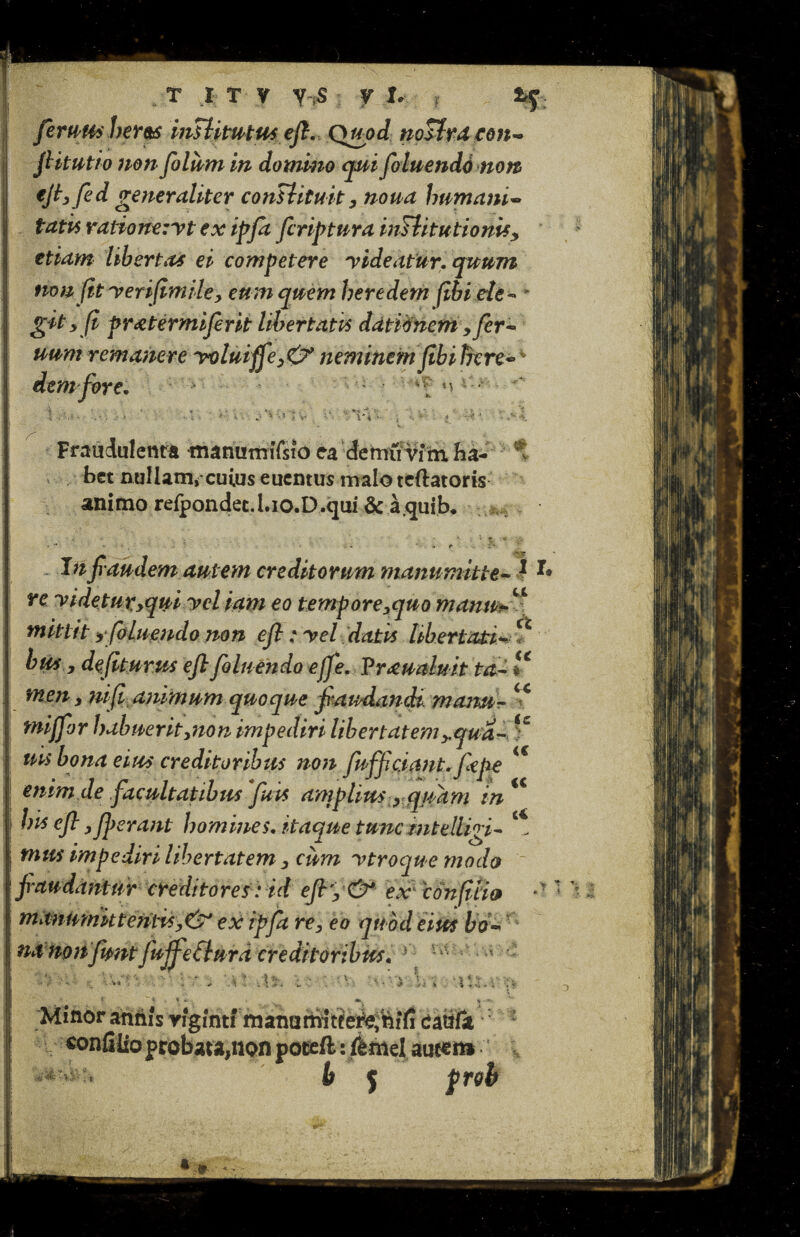 TITVVS VI. 25
ſeruus heres inſtitutus eſt. Quod noſtra con-
ſtitutio non ſolùm in domino qui ſoluendo non
eſt, ſed generaliter conſtituit, noua humani-
tatis ratione: vt ex ipſa ſcriptura inſtitutionis,
etiam libertas ei competere videatur. quum
non ſit veriſimile, eum quem heredem ſibi ele-
git, ſi prætermiſerit libertatis dationem, ſer-
uum remanere voluiſſe, & neminem ſibi here-
dem fore.
Fraudulenta manumiſsio ea demũ vim ha-
bet nullam, cuius euentus malo teſtatoris
animo reſpondet. l.10.D.qui & à quib.
In fraudem autem creditorum manumitte- 1
re videtur, qui vel iam eo tempore, quo manu- “
mittit, ſoluendo non eſt: vel datis libertati- “
bus, deſiturus eſt ſoluendo eſſe. Præualuit ta- “
men, niſi animum quoque fraudandi manu- “
miſſor habuerit, non impediri libertatem, quã- “
uis bona eius creditoribus non ſufficiant. ſæpe “
enim de facultatibus ſuis amplius, quàm in “
his eſt, ſperant homines. itaque tunc intelligi- “
mus impediri libertatem, cùm vtroque modo
fraudantur creditores: id eſt, & ex conſilio
manumittentis, & ex ipſa re, eo quòd eius bo-
na non ſunt ſuffectura creditoribus.
Minor annis viginti manumittere, niſi cauſa
conſilio probata, non poteſt: ſemel autem
b 5 prob